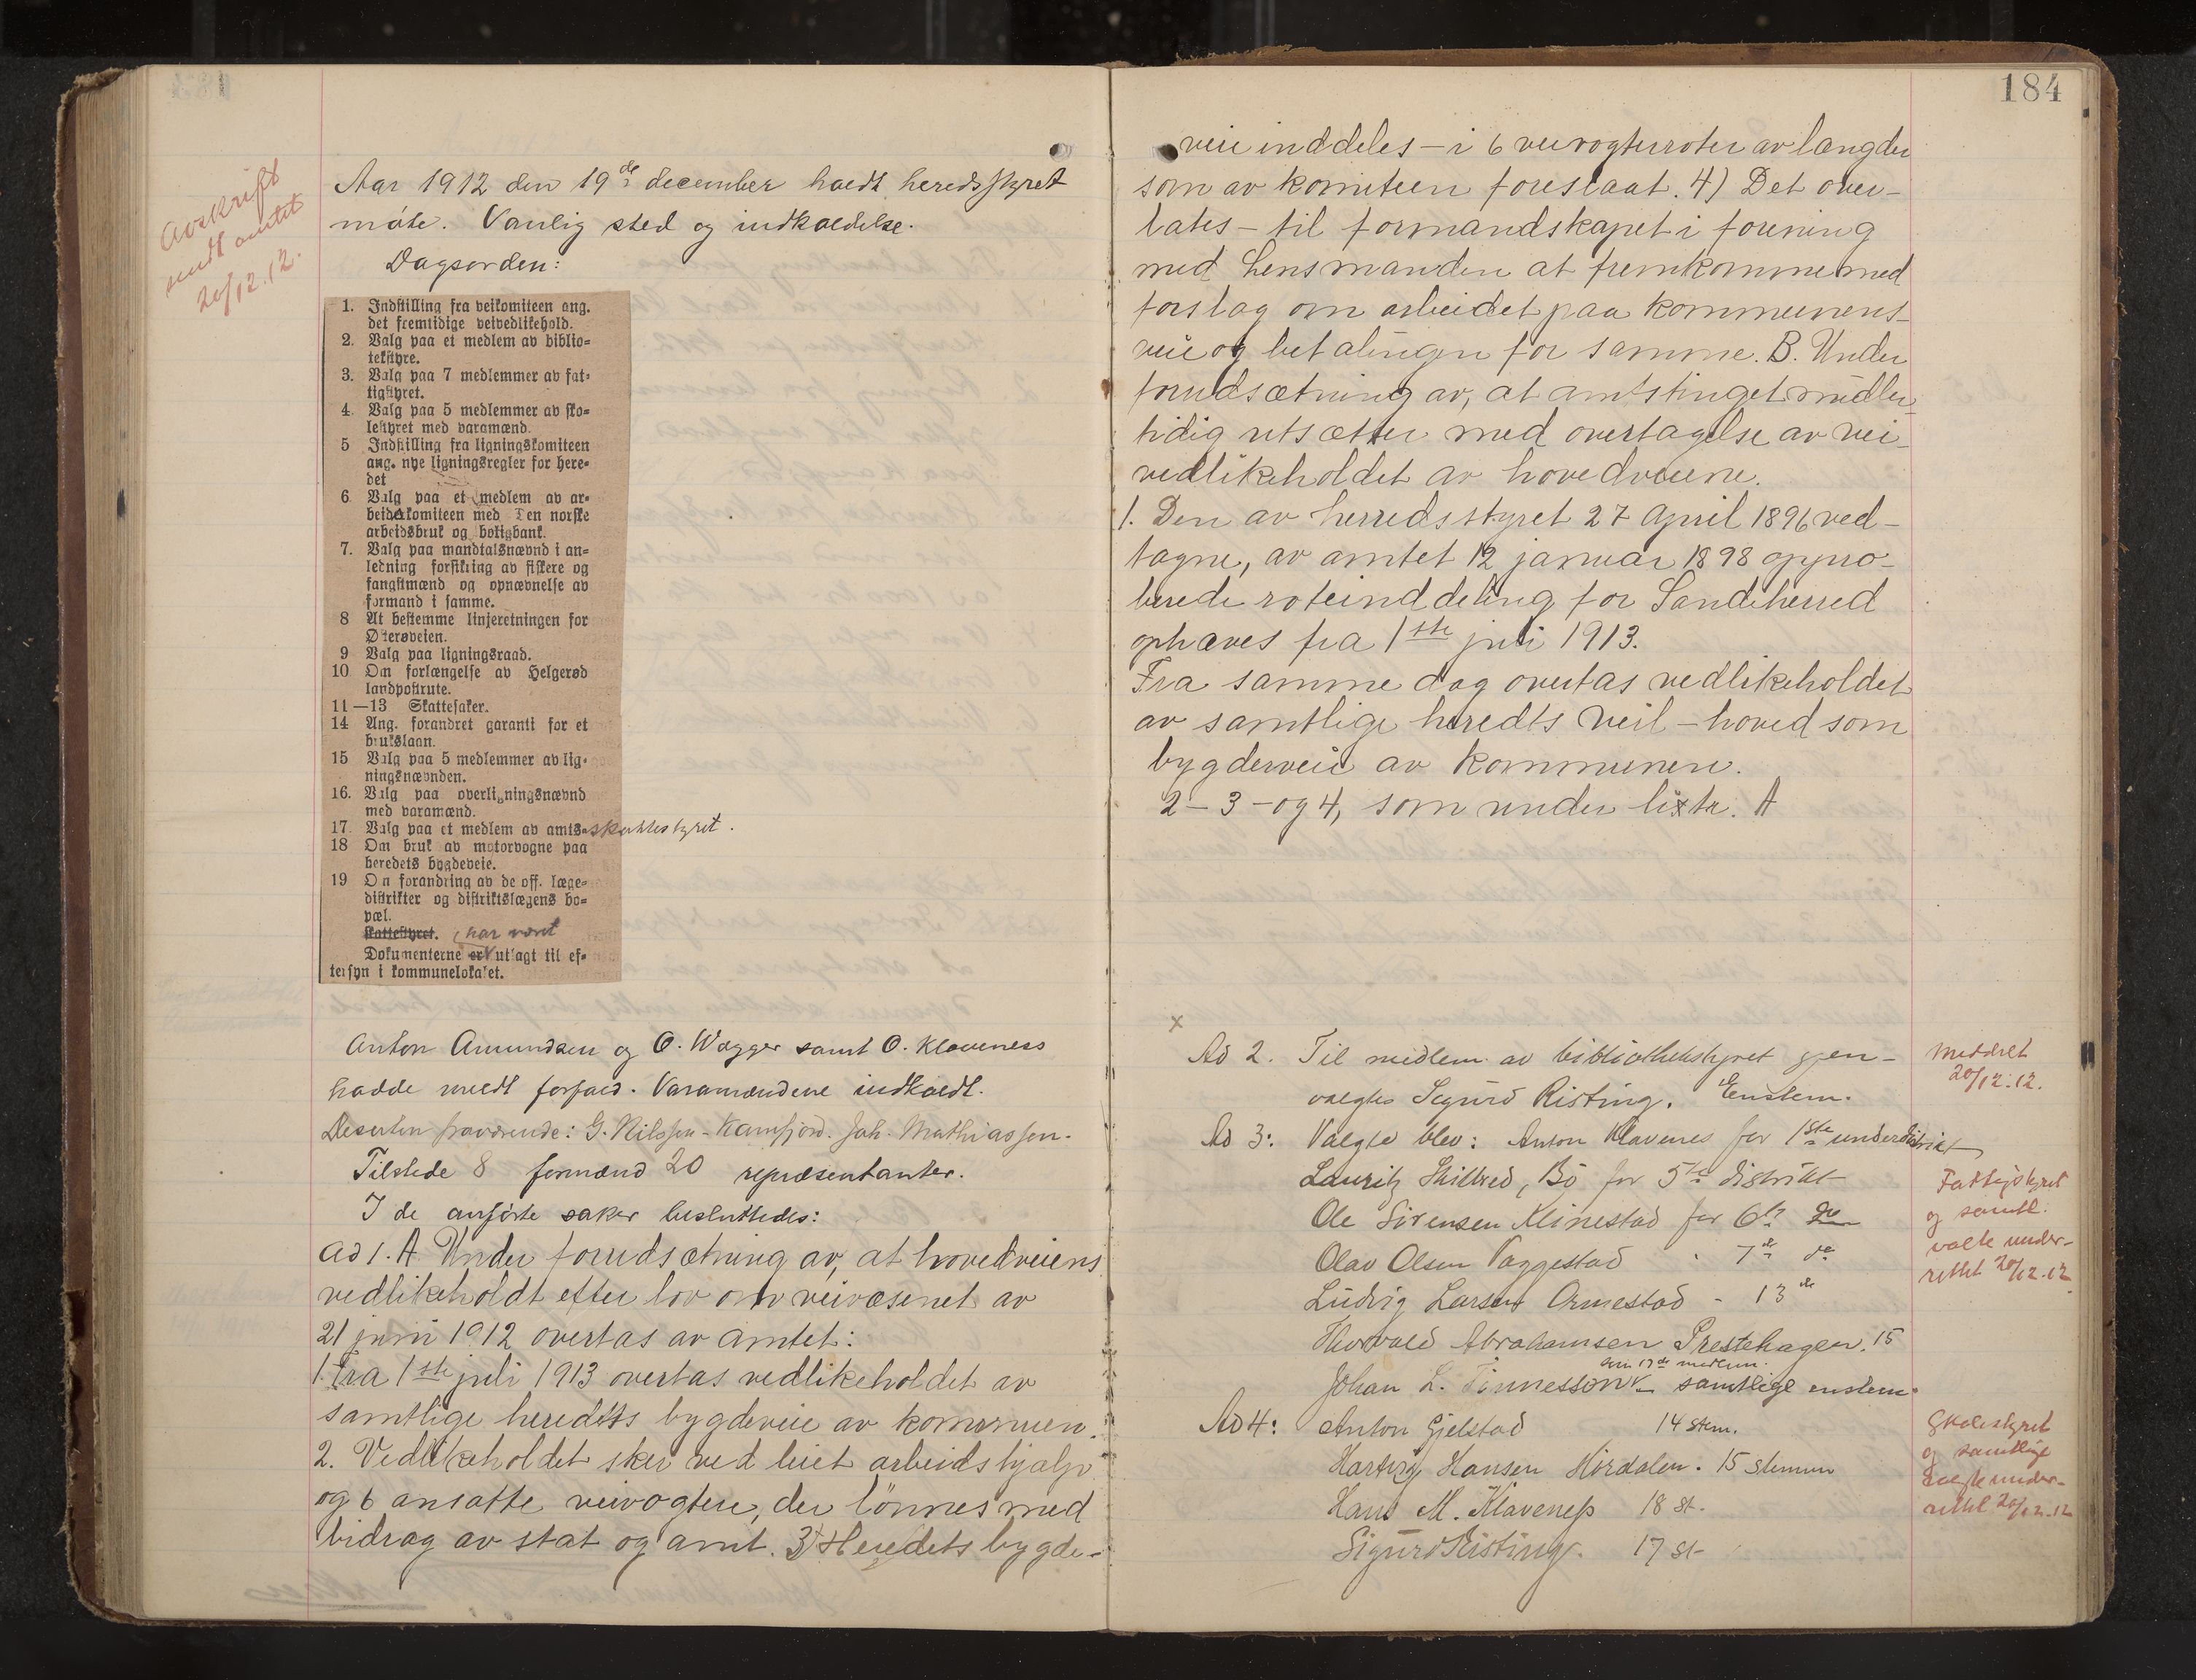 Avskrift
sendt amtet
20/12.12.
Aar 1912 den 19de december holdt heredsstyret
møte. Vanlig sted og indkaldelse.
Dagsorden:
1. Indstilling fra veikomiteen ang.
det fremtidige veivedlikehold.
2. Valg paa et medlem av biblio-
tekstyre.
3. Valg paa 7 medlemmer av fat-
tigstyret.
4. Valg paa 5 medlemmer av sko-
lestyret med varamænd.
5 Indstilling fra ligningskomiteen
ang. nye ligningsregler for here-
det
6. Valg paa et medlem av ar-
beiderkomiteen med Den norske
arbeidsbruk og boligbank.
7. Valg paa mandtalsnævnd i an-
ledning forsikring av fiskere og
fangstmænd og opnævnelse av
formand i samme.
8 At bestemme linjeretningen for
Østerøveien.
9 Valg paa ligningsraad.
10 Om forlængelse av Helgerød
landpostrute.
11—13 Skattesaker.
14 Ang. forandret garanti for et
brukslaan.
15 Valg paa 5 medlemmer av lig-
ningsnævnden.
16. Valg paa overligningsnævnd
med varamænd.
17. Valg paa et medlem av amts-skattestyret.
18 Om bruk av motorvogne paa
heredets bygdeveie.
19 Om forandring av de off. læge-
distrikter og distriktslægens bo-
pæl.
skattestyret. har vært
Dokumenterne er utlagt til ef-
tersyn i kommunelokalet.
Anton Amundsen og O. Wegger samt O. Klaveness
hadde meldt forfald. Varamændene indkaldt.
Desuten fraværende: G. Nilsson-Kamfjord. Joh. Mathiassen.
Tilstede 8 formænd 20 repræsentanter.
I de anførte saker besluttedes:
Ad 1. A. Under forudsætning av, at hovedveiens
vedlikeholdt efter lov om veivæsenet av
21 juni 1912 overtas av amtet:
1. Fra 1ste juli 1913 overtas vedlikeholdet av
samtlige heredets bygdeveie av kommunen.
2. Vedlikeholdet sker ved leiet arbeidshjælp
og 6 ansatte veivogtere, der lønnes med
bidrag av stat og amt. 3) Heredets bygde-
184
veie inddeles - i 6 veivogterroter av længder
som av komiteen foreslaat. 4) Det over-
lates - til formandskapet i forening
med Lensmanden at fremkomme med
forslag om arbeidet paa kommunens
veie og betalingen for samme. B. Under
forudsætning av, at amtstinget midler-
tidig utsætter med overtagelse av vei-
vedlikeholdet av hovedveiene.
1. Den av herredsstyret 27 april 1896 ved-
tagne, av amtet 12 januar 1898 appro-
berede roteinddeling for Sandeherred
ophæves fra 1ste juli 1913.
Fra samme dag overtas vedlikeholdet
av samtlige heredts veie - hoved som
bygdeveie av kommunen.
2 - 3 - og 4, som under littr. A
x
Ad 2. Til medlem av bibliothekstyret gjen-
valgtes Sigurd Risting. Enstem.
Meddelt
20/12.12.
Ad 3: Valgte blev: Anton Klavenes for 1ste underdistrikt
Lauritz Skilbred, Bø for 5te distrikt
Ole Sørensen Klinestad for 6te do
Olav Olsen Vaggestad " 7de do
Ludvig Larsen Ormestad - 13de
Thorvald Abrahamsen Prestehagen. 15
som 17de medlem.
Johan L. Tinnesson samtlige enstem.
Fattigstyret
og samtl.
valte under-
rettet 20/12.12
Ad 4: Anton Gjelstad 14 stem.
Hartvig Hansen Hørdalen. 15 stemmer
Hans M. Klaveness 18 st.
Sigurd Risting. 17 st
Skolestyret
og samtlige
valgte under-
rettet 20/12.12